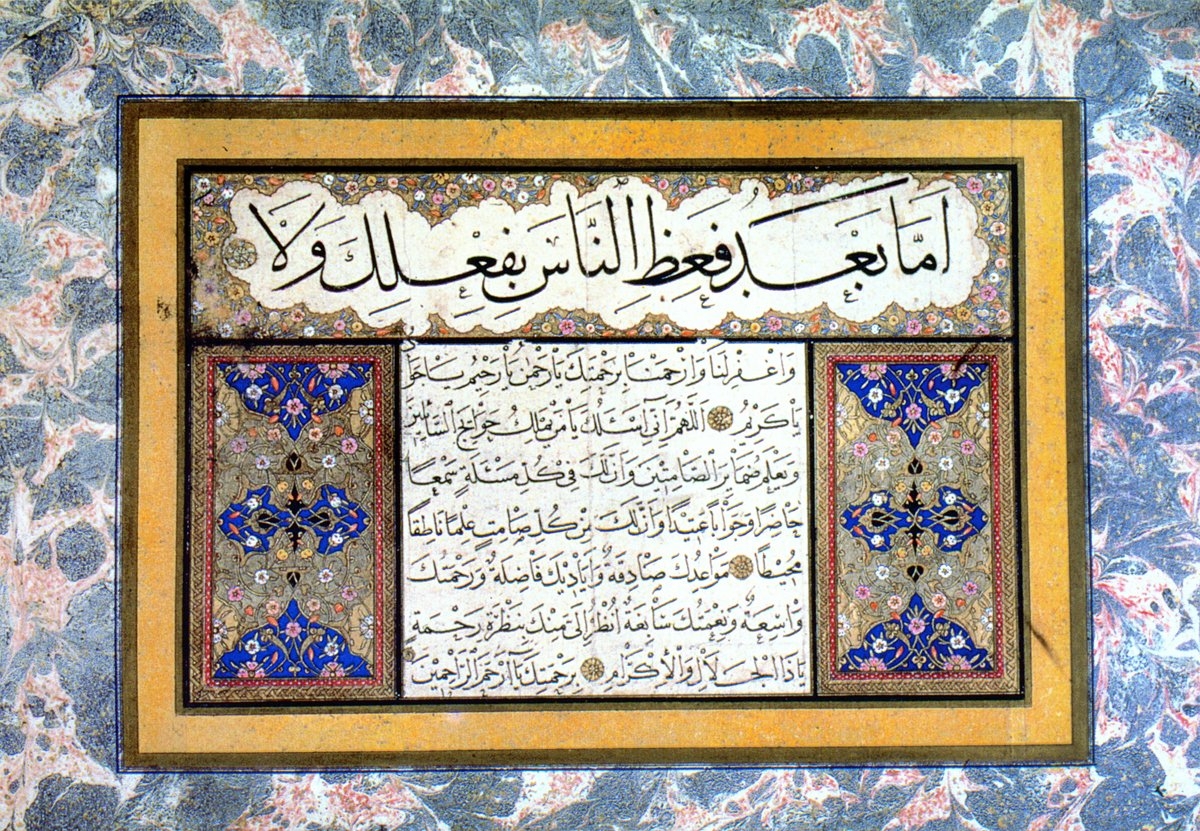 اَمَّا بَعْدُ فَعِظِ النَّاسَ بِفِعْلِكَ وَلَا
وَاغْفِرْلَنَا وَارْحَمْنَا بِرَحْمَتِكَ يَا رَحْمٰنُ يَا رَحِيمُ يَا جَوَادُ
يَا كَرِيمُ اَللّٰهُمَّ اِنِّى اَسْئَلُكَ يَا مَنْ يَمْلِكُ حَوَايِجَ السَّائِلِينَ
وَيَعْلَمُ ضَمَايِرَ الصَّامِتِينَ وَاِنَّ لَكَ فِى كُلِّ مَسْئَلَةٍ سَمْعًا
حَاضِرًا وَجَوَابًا عَتِيدًا وَاِنَّ لَكَ مِنْ كُلِّ صَامِتٍ عِلْمًا نَاطِقًا
مُحِيطًا مَوَاعِدُكَ صَادِقَةٌ وَاَيَادِيكَ فَاضِلَةٌ وَرَحْمَتُكَ
وَاسِعَةٌ وَنِعْمَتُكَ سَابِغَةٌ اُنْظُرْ اِلَىَّ مِنْكَ بِنَظْرَةِ رَحْمَةٍ
يَا ذَا الْجَلَالِ وَالْاِكْرَامِ بِرَحْمَتِكَ يَا اَرْحَمَ الرَّاحِمِينَ